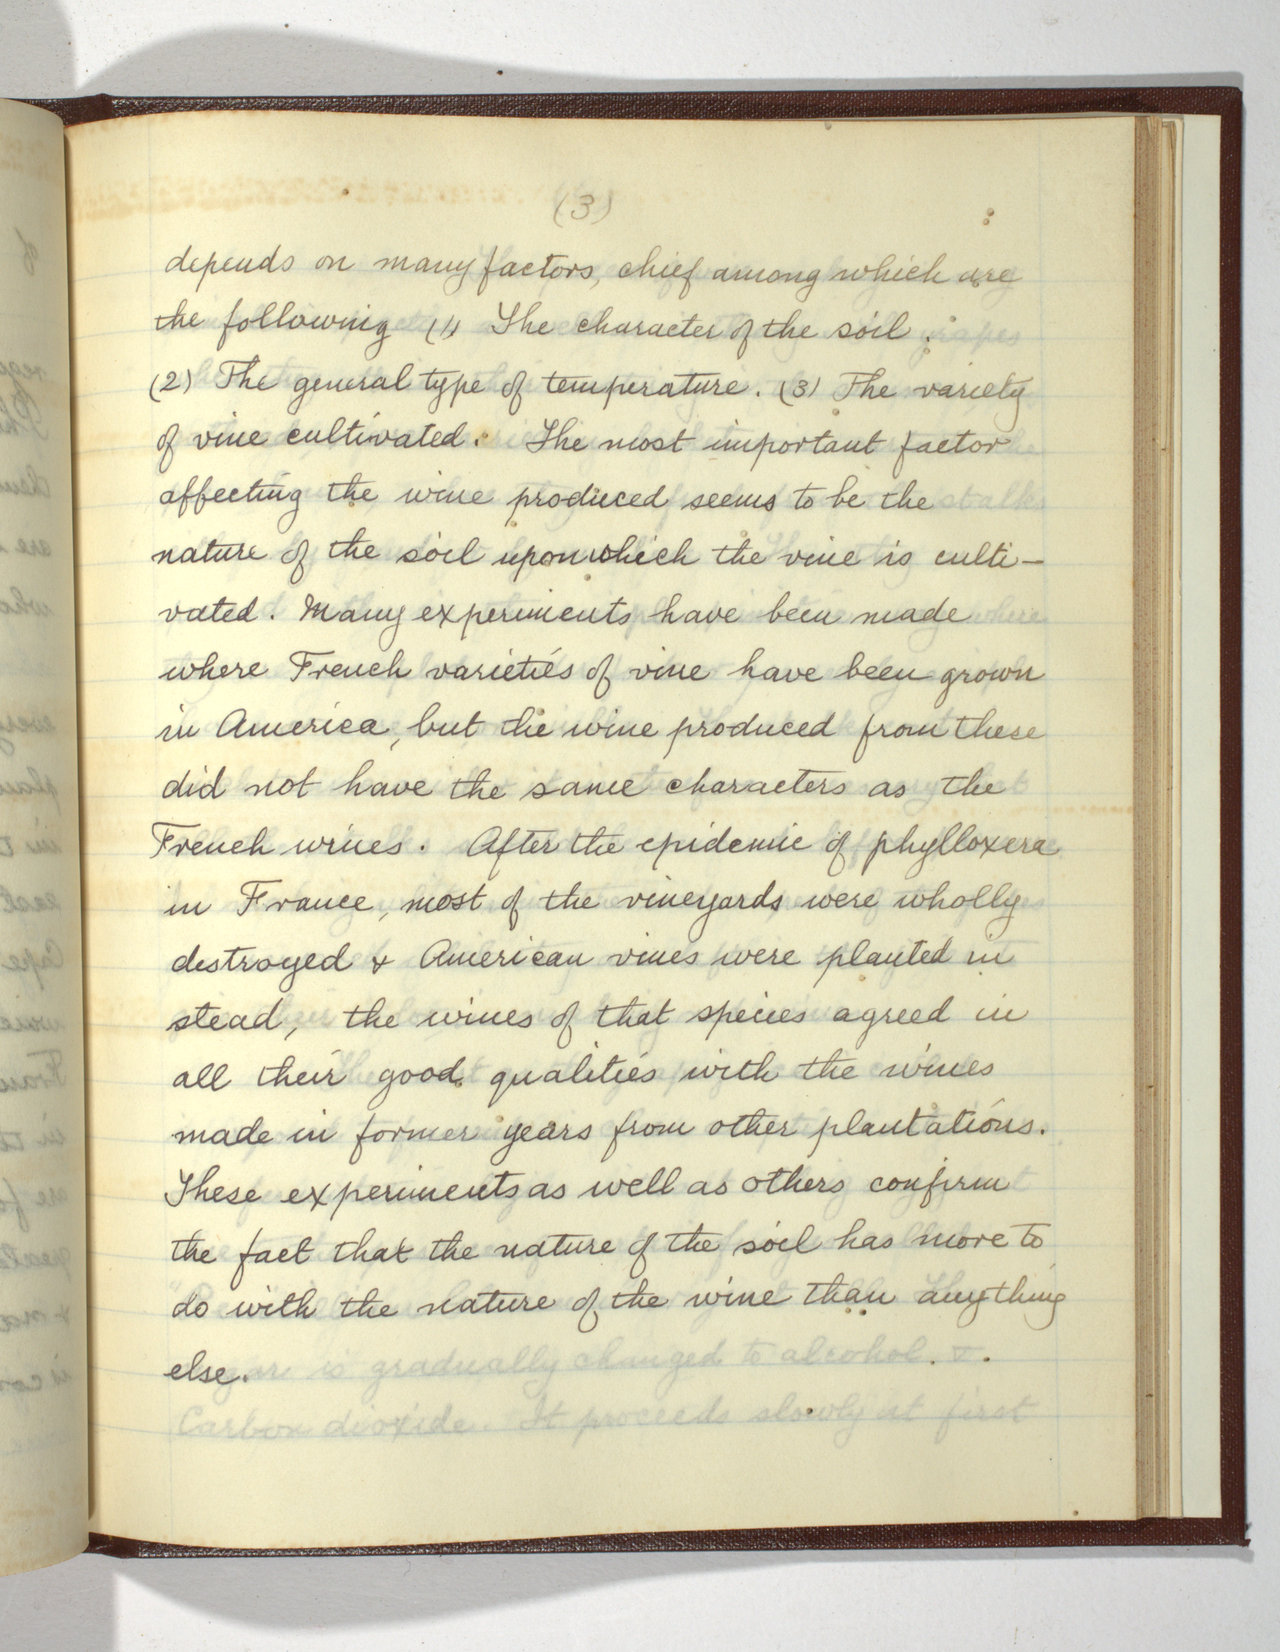 (3)
depends on many factors, chief among which are
the following (1) The character of the soil.
(2) The general type of temperature. (3) The variety
of vine cultivated. The most important factor
affecting the wine produced seems to be the
nature of the soil upon which the vine is culti-
vated. Many experiments have been made
where French varieties of vine have been grown
in America, but the wine produced from these
did not have the same characters as the
French wines. After the epidemic of phylloxera
in France, most of the vineyards were wholly
destroyed & American vines were planted in
stead, the wines of that species agreed in
all their good qualities with the wines
made in former years from other plantations.
These experiments as well as others confirm
the fact that the nature of the soil has more to
do with the nature of the wine than anything
else.
is gradually changed to alcohol. &.
Carbon dioxide. It proceeds slowly at first